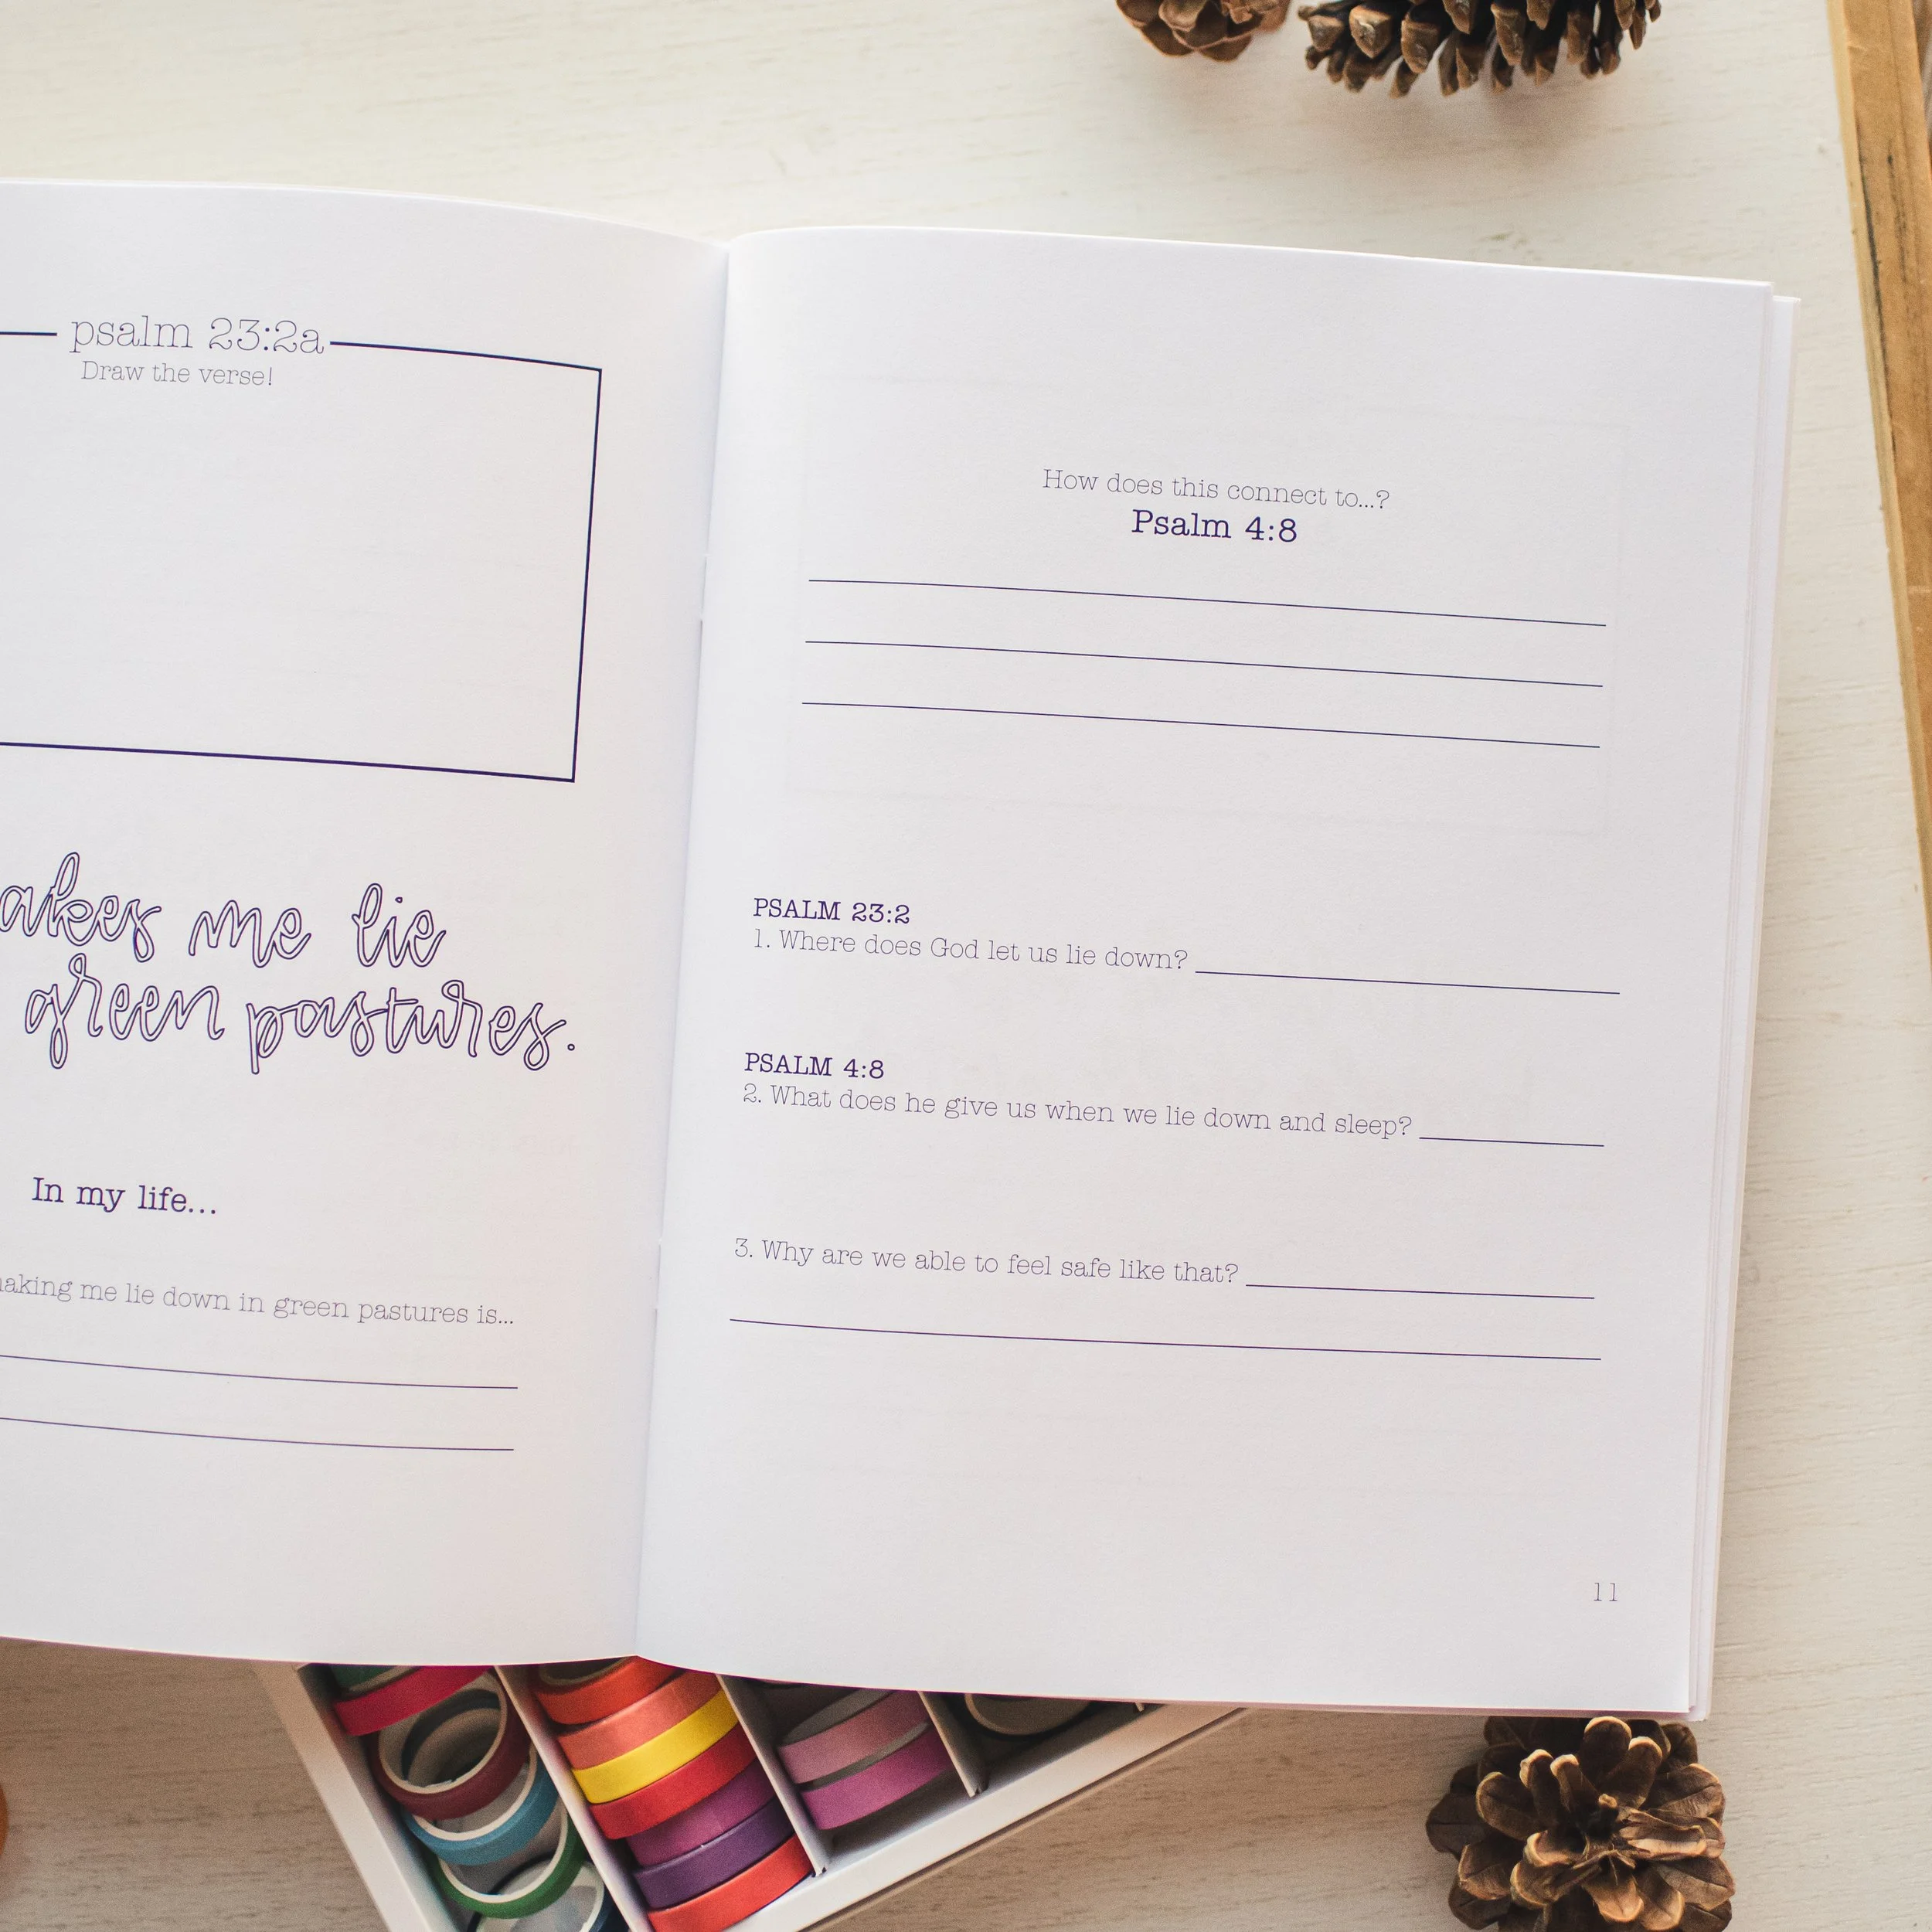 psalm 23:2a
Draw the verse!
me lie
green pastures.
In my life...
me lie down in green pastures is...
How does this connect to...?
Psalm 4:8
PSALM 23:2
1. Where does God let us lie down?
PSALM 4:8
2. What does he give us when we lie down and sleep?
3. Why are we able to feel safe like that?
11